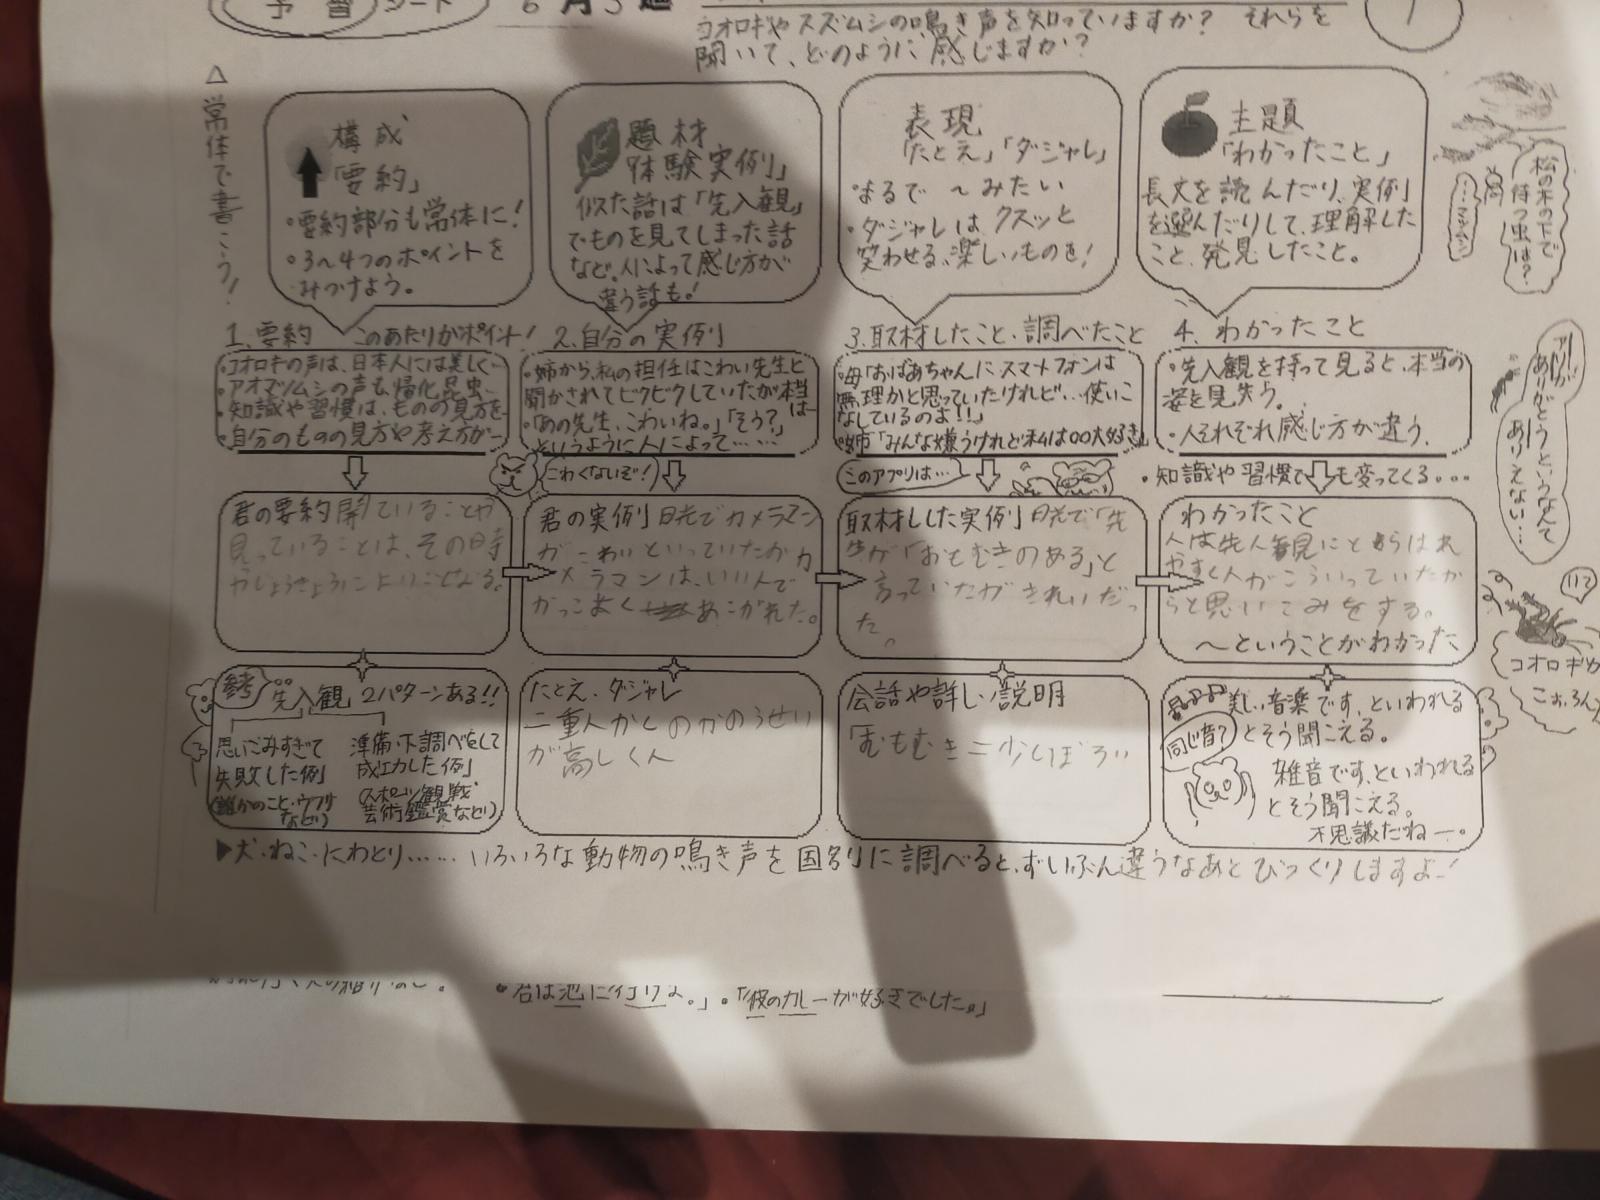 予習シート 6月3週
コオロギやスズムシの鳴き声を知っていますか? それらを
聞いて、どのように感じますか?
1
△常体で書こう!
構成
「要約」
・要約部分も常体に!
・3〜4つのポイントを
みつけよう。
題材
「体験実例」
似た話は「先入観」
でものを見てしまった話
など。人によって感じ方が
違う話も!
表現
「たとえ」「ダジャレ」
・まるで〜みたい
・ダジャレは、クスッと
笑わせる、楽しいものを!
主題
「わかったこと」
長文を読んだり、実例
を選んだりして、理解した
こと、発見したこと。
松の木の下で
待つ虫は?
…マツムシ
1.要約 このあたりがポイント!
・コオロギの声は、日本人には美しく…
・アオマツムシの声も、帰化昆虫…
・知識や習慣は、ものの見方を…
・自分のものの見方や考え方が…
2.自分の実例
・姉から、私の担任はこわい先生と
聞かされてビクビクしていたが本当は…
・「あの先生、こわいね。」「そう?」
というように人によって……
3.取材したこと・調べたこと
・母「おばあちゃんに、スマートフォンは
無理かと思っていたけれど…使いこ
なしているのよ!!」
・姉「みんな嫌うけれど私は○○大好き」
4.わかったこと
・先入観を持って見ると、本当の
姿を見失う。
・人それぞれ感じ方が違う。
・知識や習慣でも変ってくる…
こわくないぞ!
このアプリは…
アリが
ありがとうというなんて
ありえない…
君の要約 聞いていることや
見っていることは、その時
やじょうきょうによりことなる。
君の実例 日光でカメラマン
がこわいといっていたがカ
メラマンは、いい人で
かっこよく あこがれた。
取材しした実例 日光で「先
生が「おもむきのある」と
言っていたがきれいだっ
た。
わかったこと
人は先人観にとらはれ
やすく人がこういっていたか
らと思いこみをする。
〜ということがわかった
参考 先入観 2パターンある!!
思いこみすぎて
失敗した例
準備・下調べをして
成功した例
(スポーツ観戦
芸術鑑賞など)
たとえ・ダジャレ
会話や詳しい説明
美しい音楽です、といわれる
とそう聞こえる。
同じ音?
雑音です、といわれる
とそう聞こえる。
不思議だねー。
コオロギや
こおろん
▶犬・ねこ・にわとり……いろいろな動物の鳴き声を国別に調べると、ずいぶん違うなあとびっくりしますよ!
・君は池に行けよ。」・「彼のカレーが好きでした。」